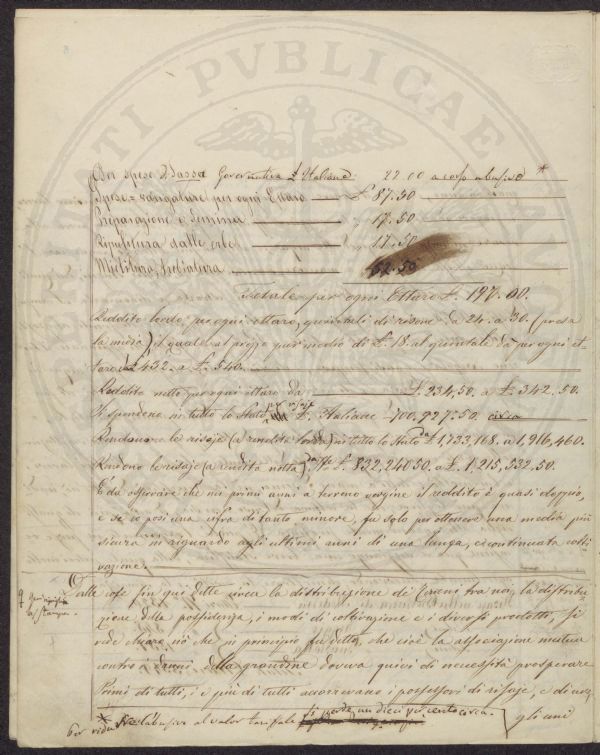 PVBLICAE
Per spese di Tassa Governativa £ Italiane 22 00 a corso abusivo *
Spese = vangature per ogni Ettaro £ 87.50
Preparazione e semina " 17.50
Ripulitura dalle erbe " 17.50
Mietitura, trebiatura 62.50
Totale per ogni Ettaro £. 197.00.
Reddito lordo per ogni ettaro, quintali di risone da 24. a 30. (presa
la media) il quale al prezzo pur medio di £. 18. al quintale dà per ogni et-
taro £ 432. a £. 540.
Reddito netto per ogni ettaro da £. 234,50. a £. 342.50.
Si spendono in tutto lo Stato per risaje £. Italiane 700,927:50. circa
Rendono le risaje (a rendita lorda) in tutto lo Stato da £ 1,733,168. a 1,916,460.
Rendono le risaje (a rendita netta) £. 832,240 50. a £. 1,215,532.50.
È da osservare che nei primi anni a terreno vergine il reddito è quasi doppio,
e se io posi una cifra di tanto minore, fu solo per ottenere una media più
sicura in riguardo agli ultimi anni di una lunga, e continuata colti-
vazione.
Dalle cose fin qui dette circa la distribuzione de' terreni tra noi, la distribu-
zione della possidenza, i modi di coltivazione e i diversi prodotti, si
vede chiaro ciò che in principio fu detto, che cioè la associazione mutua
contro i danni della grandine doveva quivi di necessità prosperare
Primi di tutti, i e più di tutti accorrevano i possessori di risaje, e di
gli uni
* Per ridurre l'abusivo al valor tariffale si perde un dieci per cento circa.